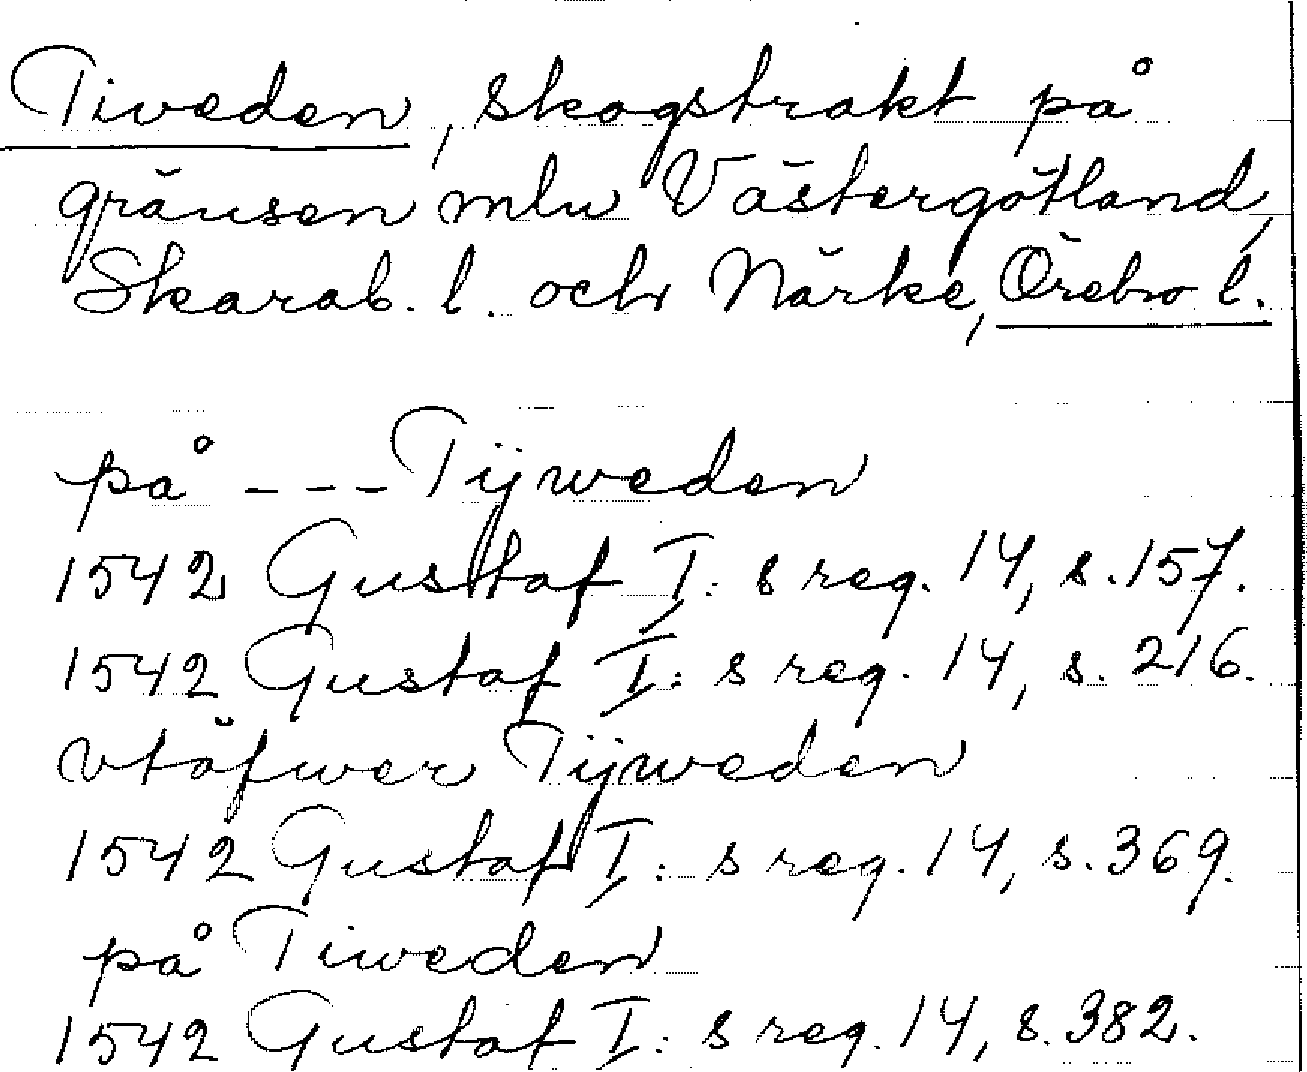 Tiveden, skogstrakt på
gränsen mln Västergötland,
Skarab. l. och Närke, Örebro l.
på --- Tijweden
1542 Gustaf I:s reg. 14, s. 157.
1542 Gustaf I:s reg. 14, s. 216.
vtöfwer Tijweden
1542 Gustaf I:s reg. 14, s. 369.
på Tiweden
1542 Gustaf I:s reg. 14, s. 382.